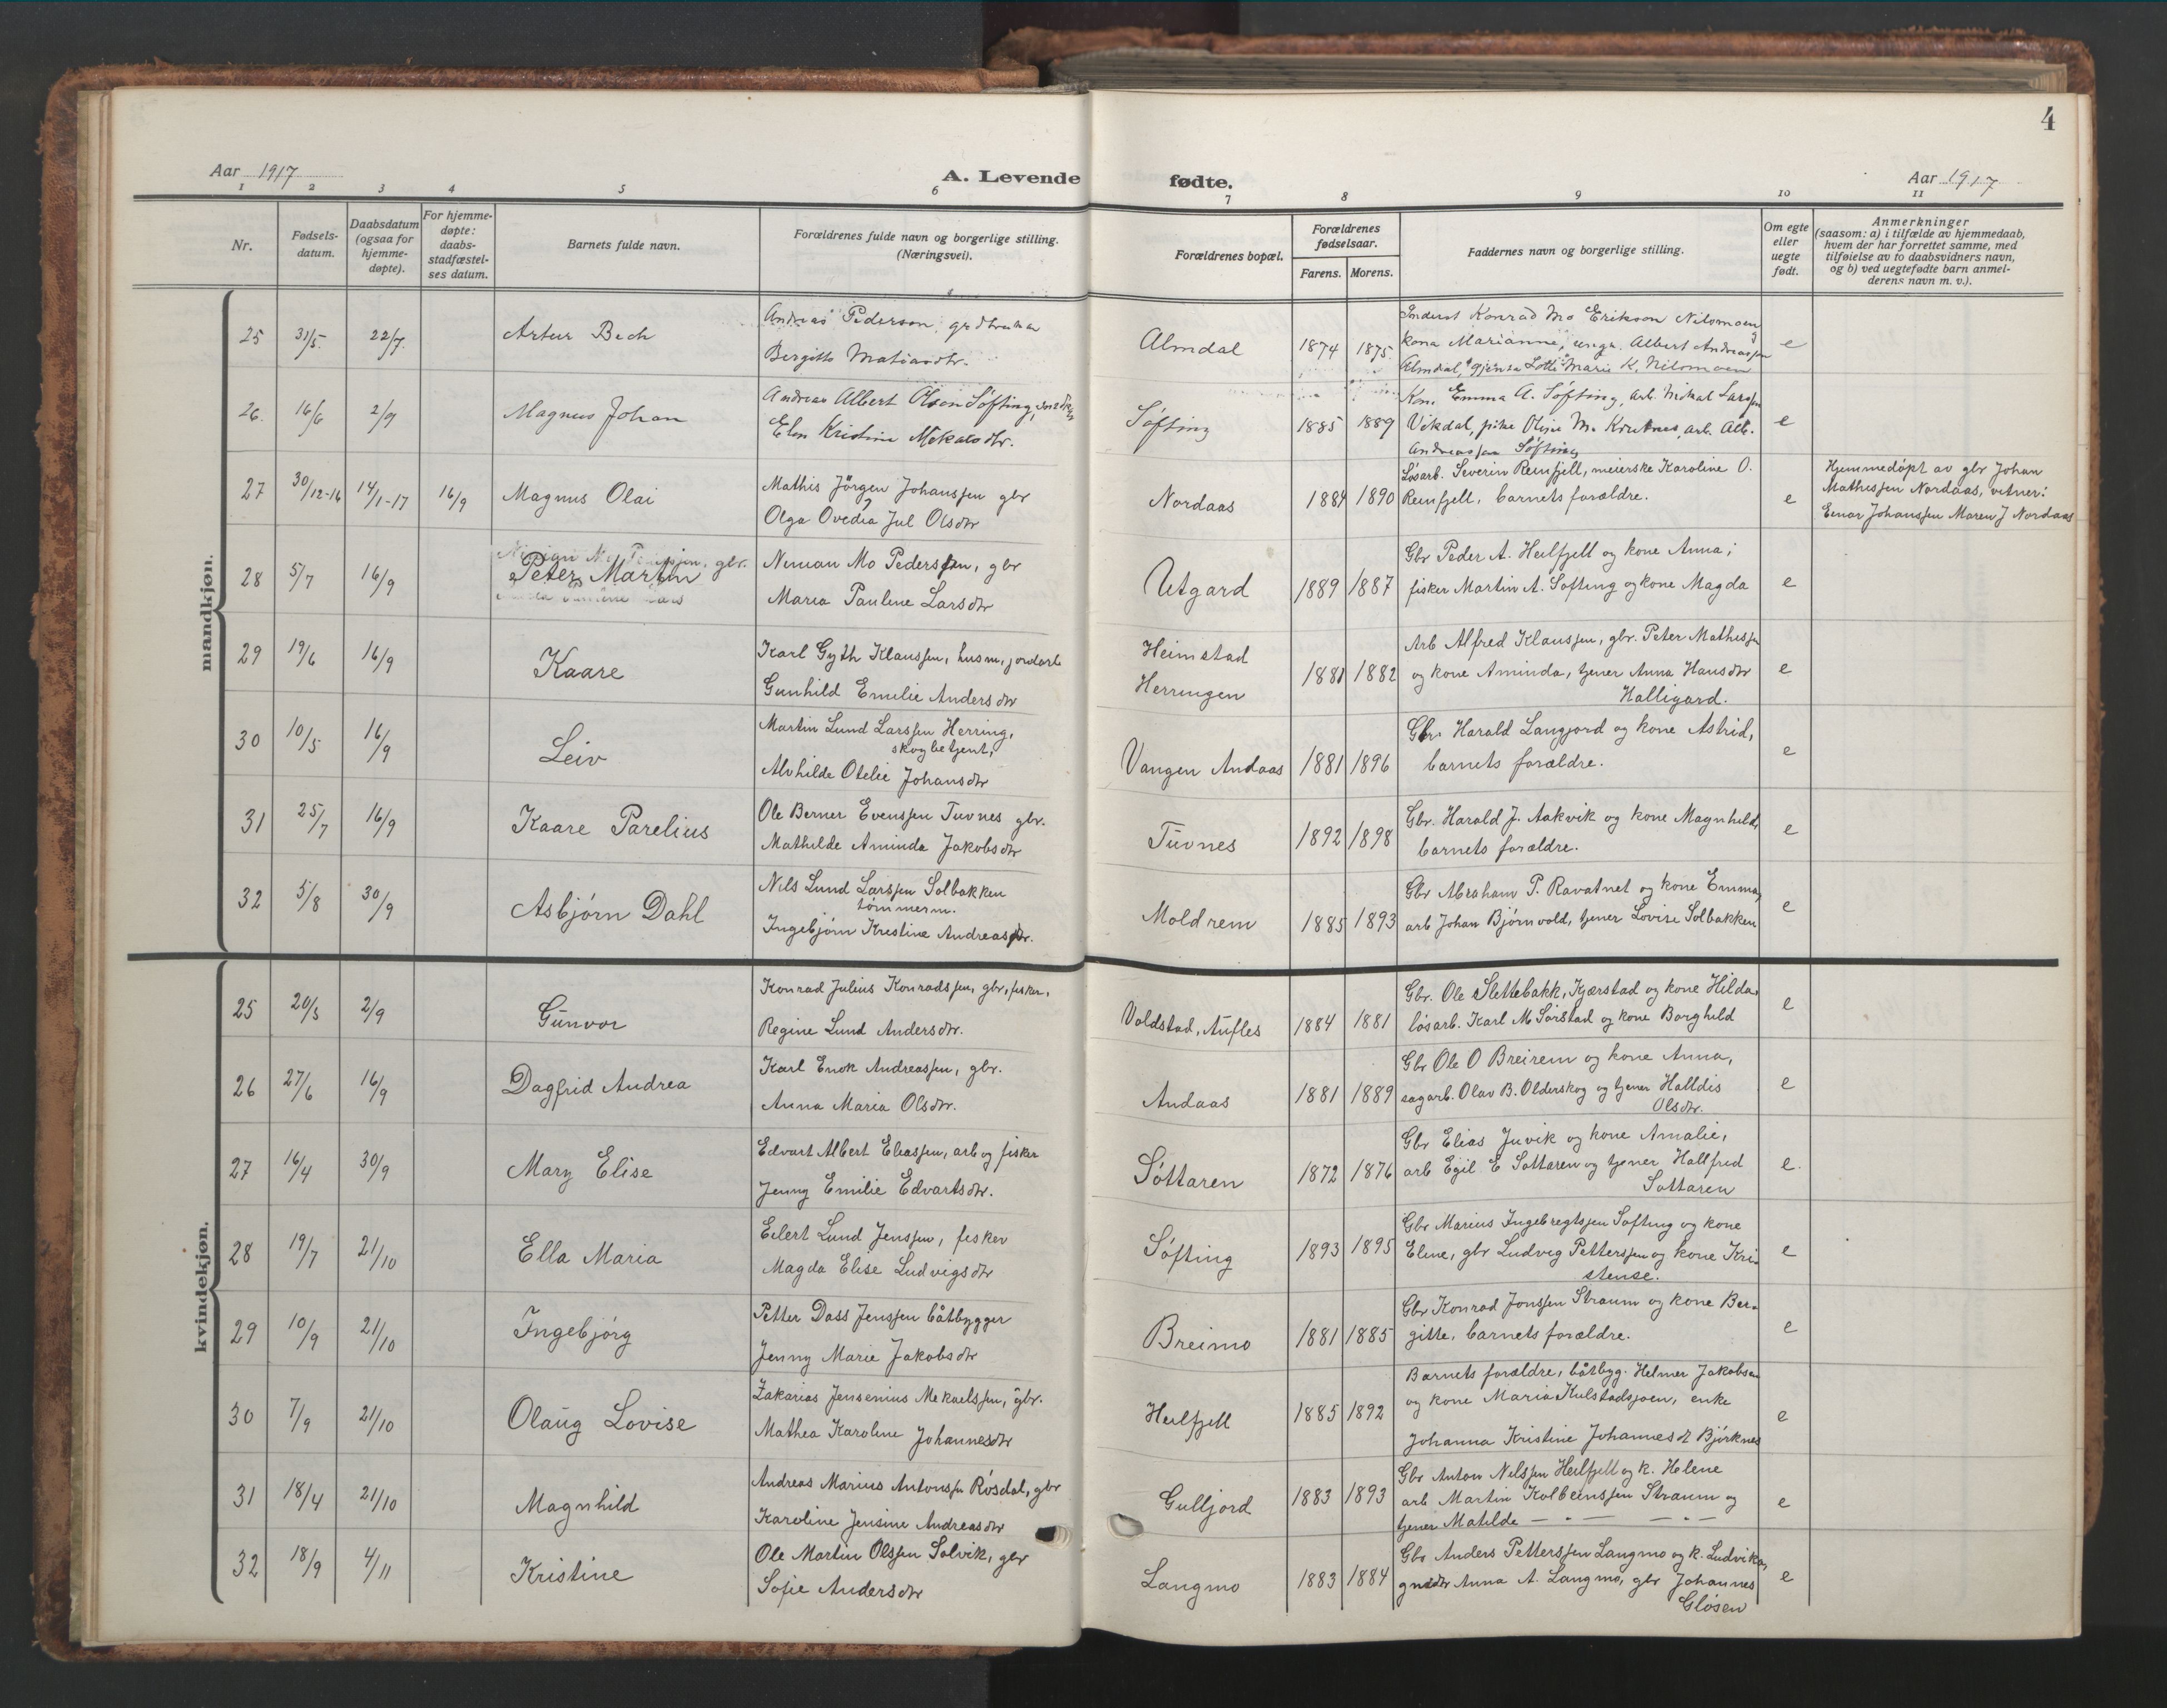 4
Aar 1917
A. Levende fødte.
Aar 1917
1 2 3 4 5 6 7 8 9 10 11
Nr.
Fødsels-
datum.
Daabsdatum
(ogsaa for
hjemme-
døpte).
For hjemme-
døpte:
daabs-
stadfæstel-
ses datum.
Barnets fulde navn.
Forældrenes fulde navn og borgerlige stilling.
(Næringsvei).
Forældrenes bopæl.
Forældrenes
fødselsaar.
Farens. Morens.
Faddernes navn og borgerlige stilling.
Om egte
eller
uegte
født.
Anmerkninger
(saasom: a) i tilfælde av hjemmedaab,
hvem der har forrettet samme, med
tilføielse av to daabsvidners navn,
og b) ved uegtefødte barn anmel-
derens navn m. v.).
mandkjøn.
25 31/5. 22/7. Artur Bech
Andreas Pederson, grdbruker
Bergitte Matiasdtr.
Almdal 1874 1875.
Inderst Konrad Mo Erikson Nilsmoen
kona Marianne, ungk. Albert Andreassen
Almdal, gjente Lotte Marie K. Nilsmoen
e
26. 16/6 2/9 Magnus Johan
Andreas Albert Olson Søfting,
Elen Kristine Mekalsdtr.
Søfting 1885 1889
Kone Emma A. Søfting, arb. Mikal Larssen
Vikdal, pike Oline M. Krutnes, arb. Alb.
Andreassen Søfting
e
27 30/12-16 14/1-17 16/9 Magnus Olai
Mathis Jörgen Johanssen gbr
Olga Ovedia Jul Olsdtr
Nordaas 1884 1890
Løsarb. Severin Remfjell, meierske Karoline O.
Remfjell, barnets forældre.
e
Hjemmedöpt av gbr Johan
Mathissen Nordaas, vitner:
Einar Johanssen Maren J Nordaas
28 5/7 16/9 Peter Martin
Niman Mo Pederssen, gbr
Maria Pauline Larsdtr
Utgard 1889 1887
Gbr Peder A. Heilfjell og kone Anna;
fisker Martin A. Søfting og kone Magda
e
29 19/6 16/9 Kaare
Karl Gyth Klaussen, husm, jordarb
Gunhild Emelie Andersdtr
Heimstad
Herringen
1881 1882
Arb Alfred Klaussen, gbr. Peter Mathissen
og kone Aminda, tjener Anna Hansdtr
Halligard.
e
30 10/5 16/9 Leiv
Martin Lund Larssen Herring,
skogbetjent,
Alvhilde Otelie Johansdtr
Vangen Andaas 1881 1896
Gbr. Harald Langjord og kone Astrid,
barnets forældre.
e
31 25/7 16/9 Kaare Parelius
Ole Berner Evenssen Tuvnes gbr.
Mathilde Aminda Jakobsdtr
Tuvnes 1892 1898
Gbr. Harald J. Aakvik og kone Magnhild,
barnets forældre.
e
32 5/8 30/9 Asbjørn Dahl
Nils Lund Larssen Solbakken
tömmerm.
Ingebjørn Kristine Andreasdtr.
Moldrem 1885 1893
Gbr Abraham P. Ravatnet og kone Emma,
arb Johan Bjørnvold, tjener Lovise Solbakken
e
kvindekjøn.
25 20/5 2/9 Gunvor
Konrad Julius Konradssen, gbr, fisker,
Regine Lund Andersdtr.
Voldstad, Aufles 1884 1881
Gbr. Ole Slettebakk, Kjærstad og kone Hilda,
løsarb. Karl M Sørstad og kone Borghild
e
26 27/6 16/9 Dagfrid Andrea
Karl Enok Andreassen, gbr.
Anna Maria Olsdtr.
Andaas 1881 1889
Gbr Ole O Breirem og kone Anna,
sagarb. Olav B. Olderskog og tjener Halldis
Olsdtr.
e
27 16/4 30/9 Mary Elise
Edvart Albert Eliassen, arb og fisker
Jenny Emilie Edvartsdtr.
Søttaren 1872 1876
Gbr Elias Juvik og kone Amalie,
arb Egil E Søttaren og tjener Hallfrid
Søttaren
e.
28 19/7 21/10 Ella Maria
Eilert Lund Jenssen, fisker
Magda Elise Ludvigsdtr
Søfting 1893 1895
Gbr Marius Ingebregtsen Søfting og kone
Eline, gbr Ludvig Petterssen og kone Kri-
stense.
e
29 10/9 21/10 Ingebjörg
Petter Dass Jenssen båtbygger
Jenny Marie Jakobsdtr
Breimo 1881 1885
Gbr Konrad Jonssen Straum og kone Ber-
gitte, barnets forældre.
e
30 7/9 21/10 Olaug Lovise
Zakarias Jensenius Mekaelssen, gbr.
Mathea Karoline Johannesdtr
Heilfjell 1885 1892
Barnets forældre, båtbyg. Helmer Jakobsen
og kone Maria Kulstadsjøen, enke
Johanna Kristine Johannesdt Bjørknes
e
31 18/4 21/10 Magnhild
Andreas Marius Antonssen Røsdal, gbr
Karoline Jensine Andreasdtr
Gulljord 1883 1893
Gbr Anton Nilssen Heilfjell og k. Helene
arb Martin Kolbeinssen Straum og
tjener Matilde — " — — " —
e
32 18/9 4/11 Kristine
Ole Martin Olssen Solvik, gbr
Sofie Andersdtr
Langmo 1883 1884
Gbr Anders Petterssen Langmo og k. Ludvika,
Anna A. Langmo, gbr Johannes
Gløsen
e